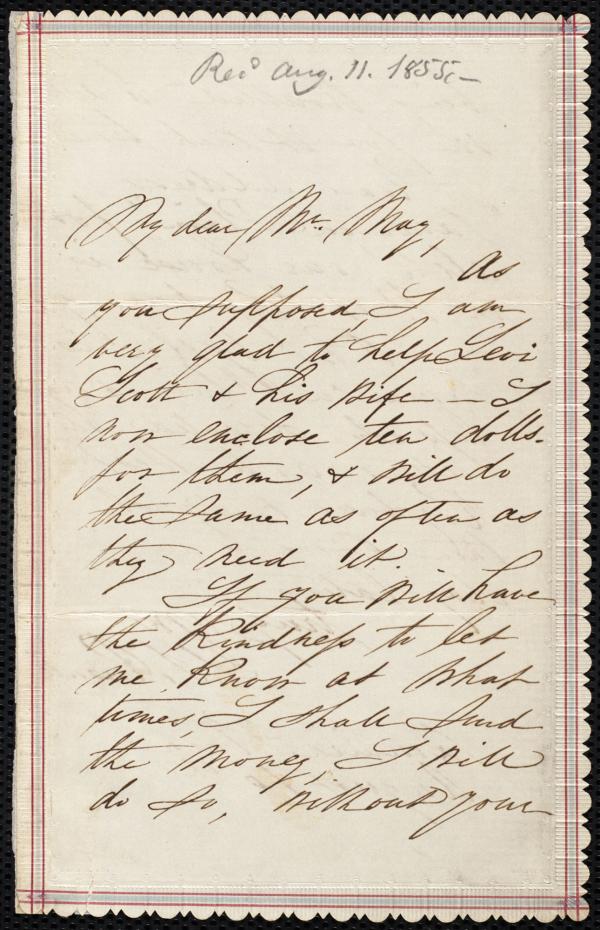 Rec'd Aug. 11. 1855.
My dear Mr. May,
As
you supposed, I am
very glad to help Levi
Scott & his wife — I
now enclose ten dolls.
for them, & will do
the same as often as
they need it.
If you will have
the kindness to let
me know at what
times, I shall send
the money, I will
do so, without your